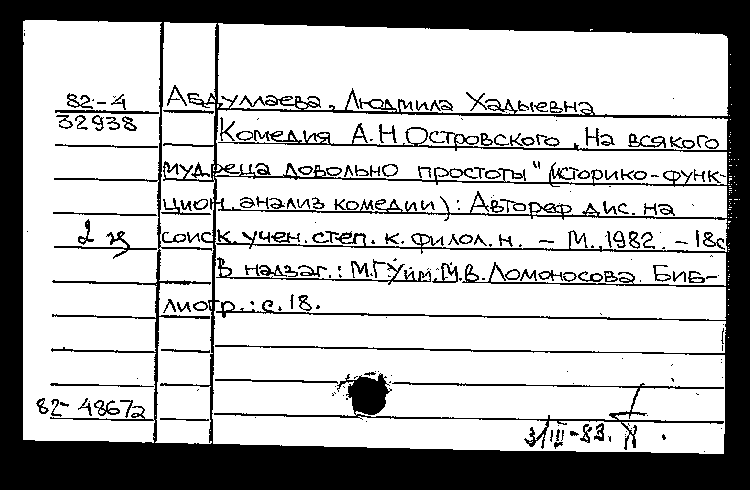 82-4 Абдуллаева, Людмила Хадыевна
32938 Комедия А.Н.Островского „На всякого
мудреца довольно простоты" (историко-функ-
цион. анализ комедии): Автореф дис. на
2 соиск. учен. степ. к. филол. н. – М., 1982. – 18с
В надзаг.: МГУ им. М.В.Ломоносова. Биб-
лиогр.: с. 18.
82-48672
3/III-83.